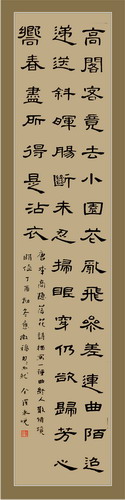 高閣客竟去小園花亂飛參差連曲陌迢
遞送斜暉腸斷未忍掃眼穿仍欲歸芳心
嚮春盡所得是沾衣
唐李商隱落花詩